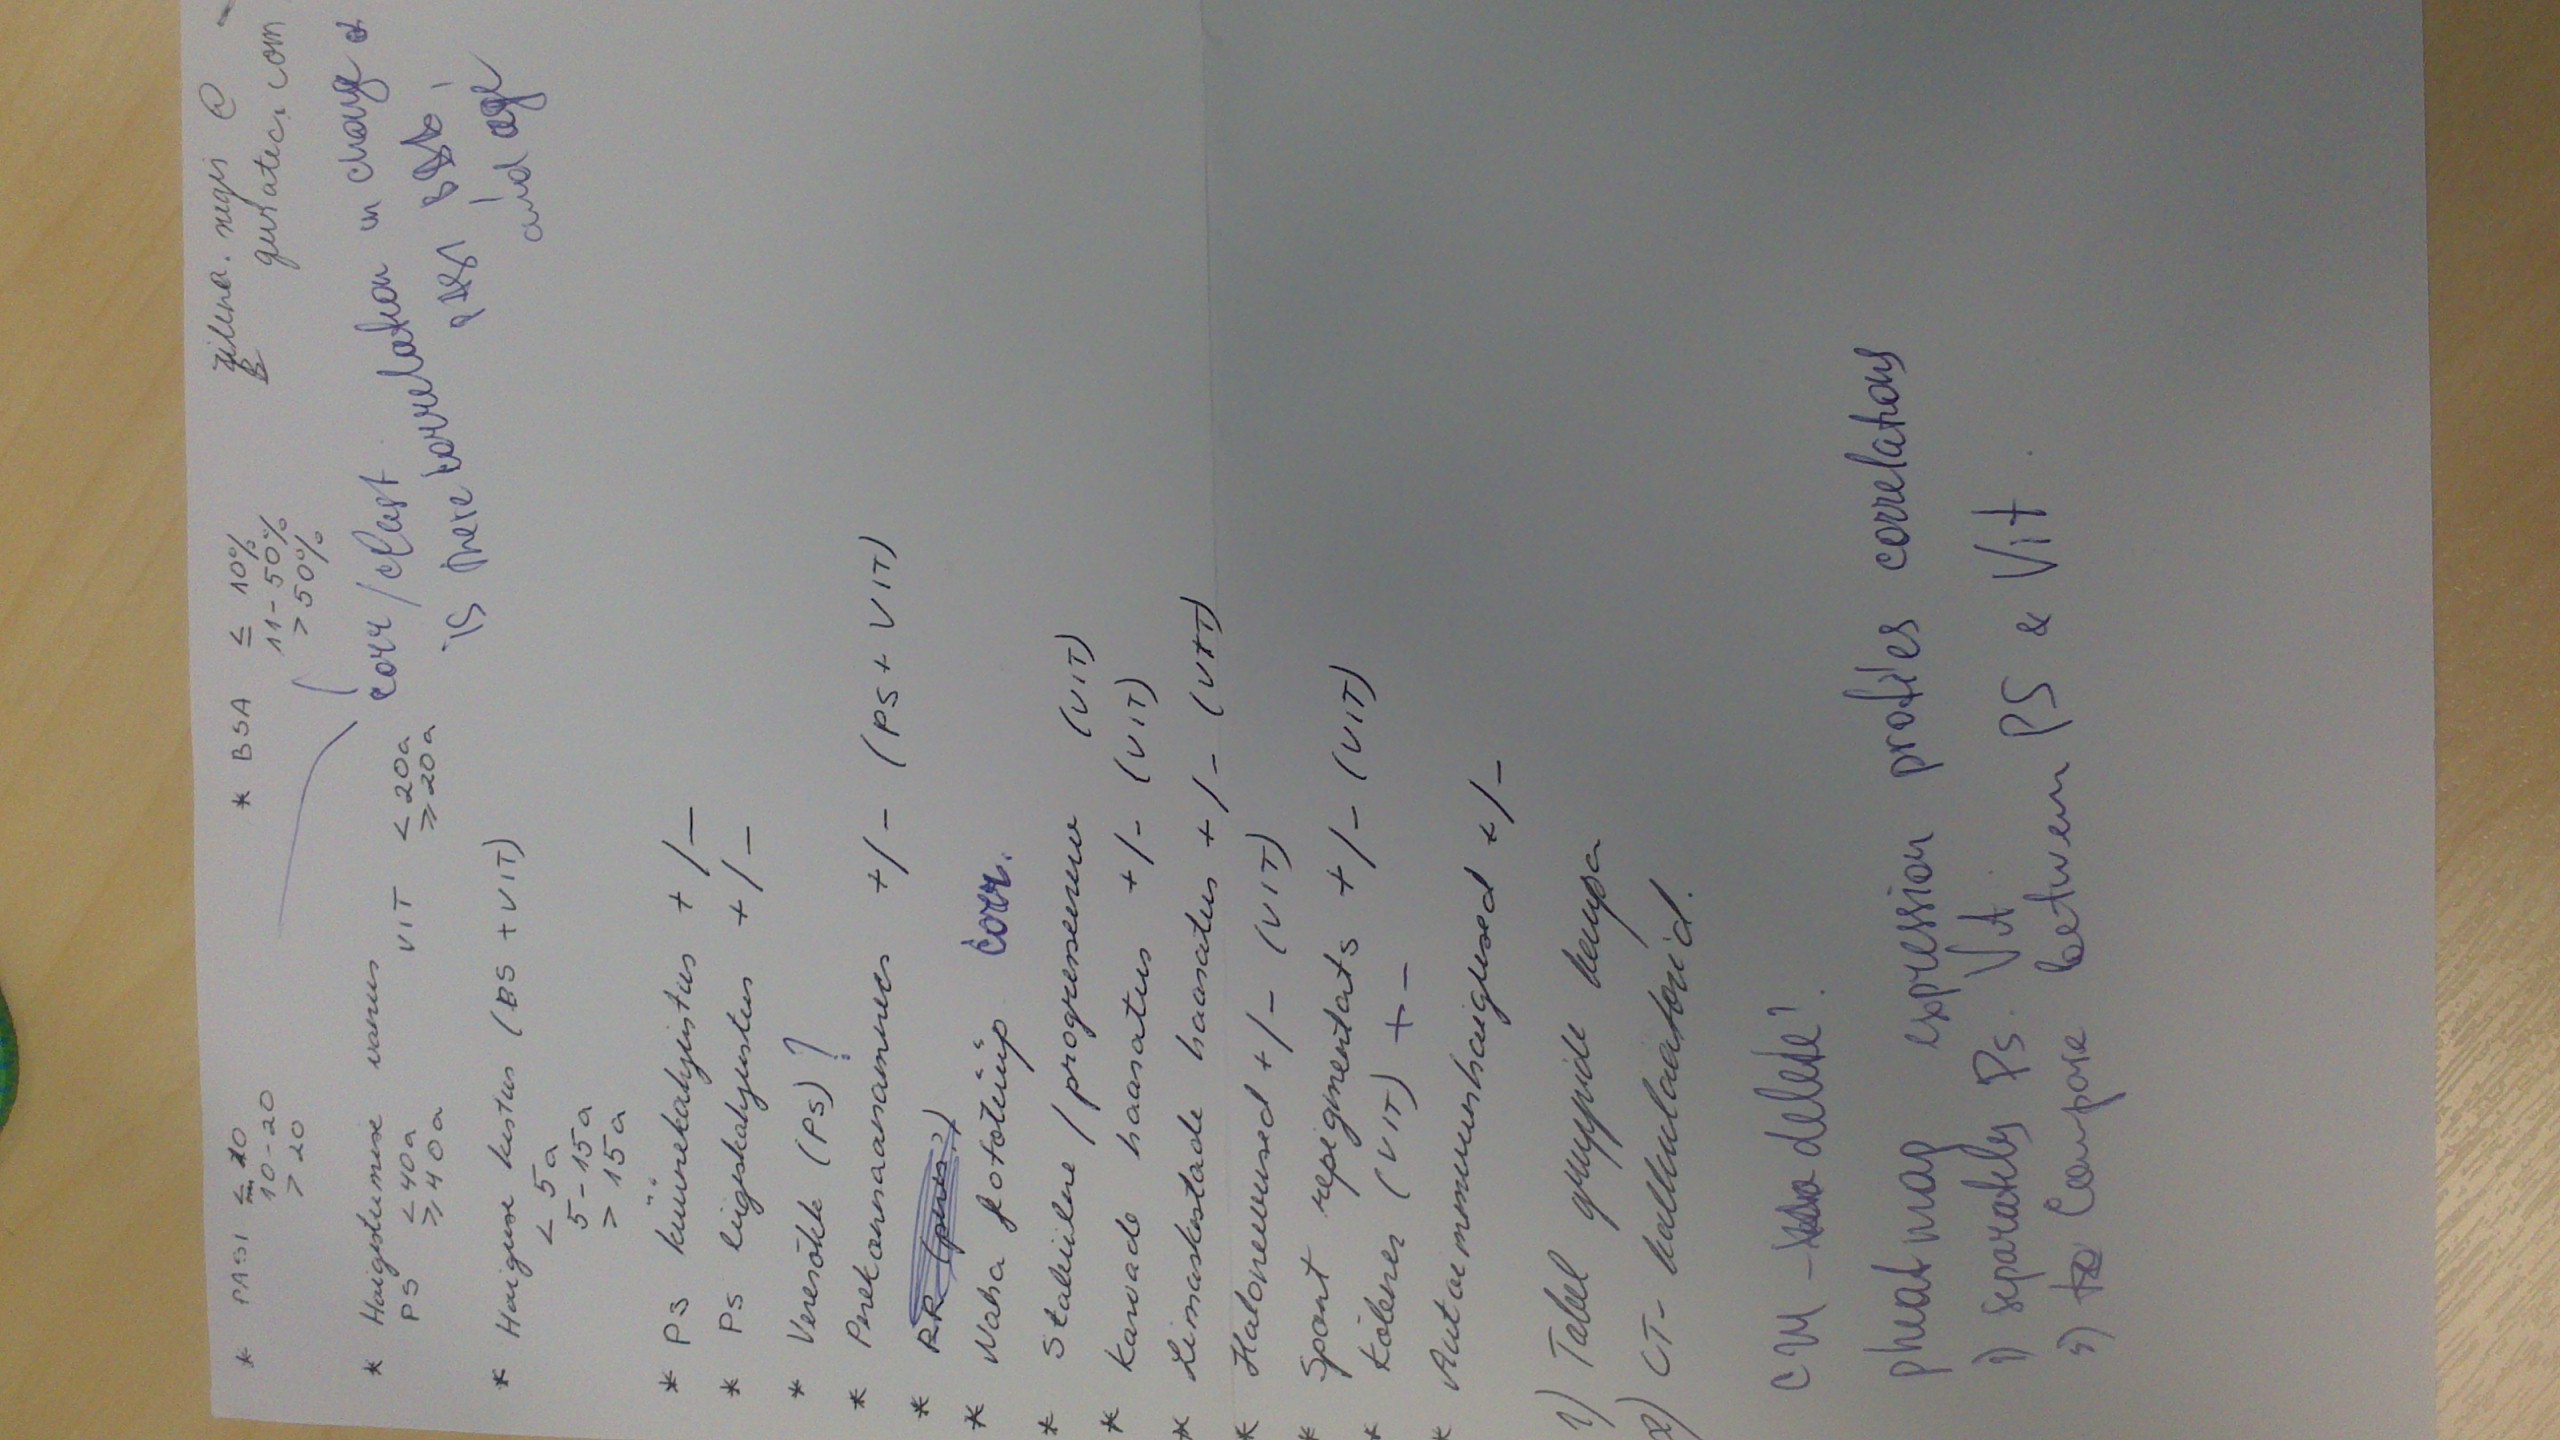 * PASI ≤ 10
10-20
> 20
* BSA ≤ 10%
11-50%
> 50%
@
corr/clust
is there correlation in change of
PASI, BSA,
and age
* Haigestumise vanus
PS < 40a VIT < 20a
≥ 40a ≥ 20a
* Haiguse kestus (PS + VIT)
< 5a
5-15a
> 15a
* PS küünekahjustus + / -
* PS liigeskahjustus + / -
* Veresõkk (PS) ?
* Perekonnaanamnees + / - (PS + VIT)
* RR
* Naha fototüüp corr.
* Stabiilne / progresseeruv (VIT)
* Karvade haaratus + / - (VIT)
* Limaskestade haaratus + / - (VIT)
* Halonevused + / - (VIT)
* Spont repigmentats + / - (VIT)
* Köbner (VIT) + -
* Autoimmuunhaigused + / -
1) Tabel gruppide kaupa
2) CT- kalkulaatorid.
CM - delete?
pheatmap expression profiles correlations
1) separately Ps. Vit.
2) Compare between PS & Vit.